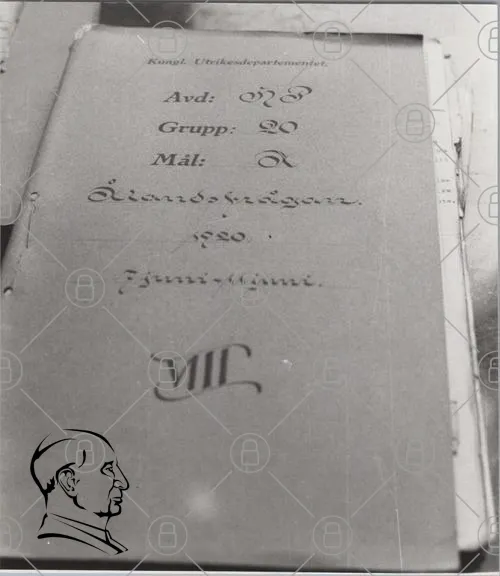 Kungl. Utrikesdepartementet.
Avd: HP
Grupp: 20
Mål: A
Ålandsfrågan.
1920
7 juni-11 juni.
VIII